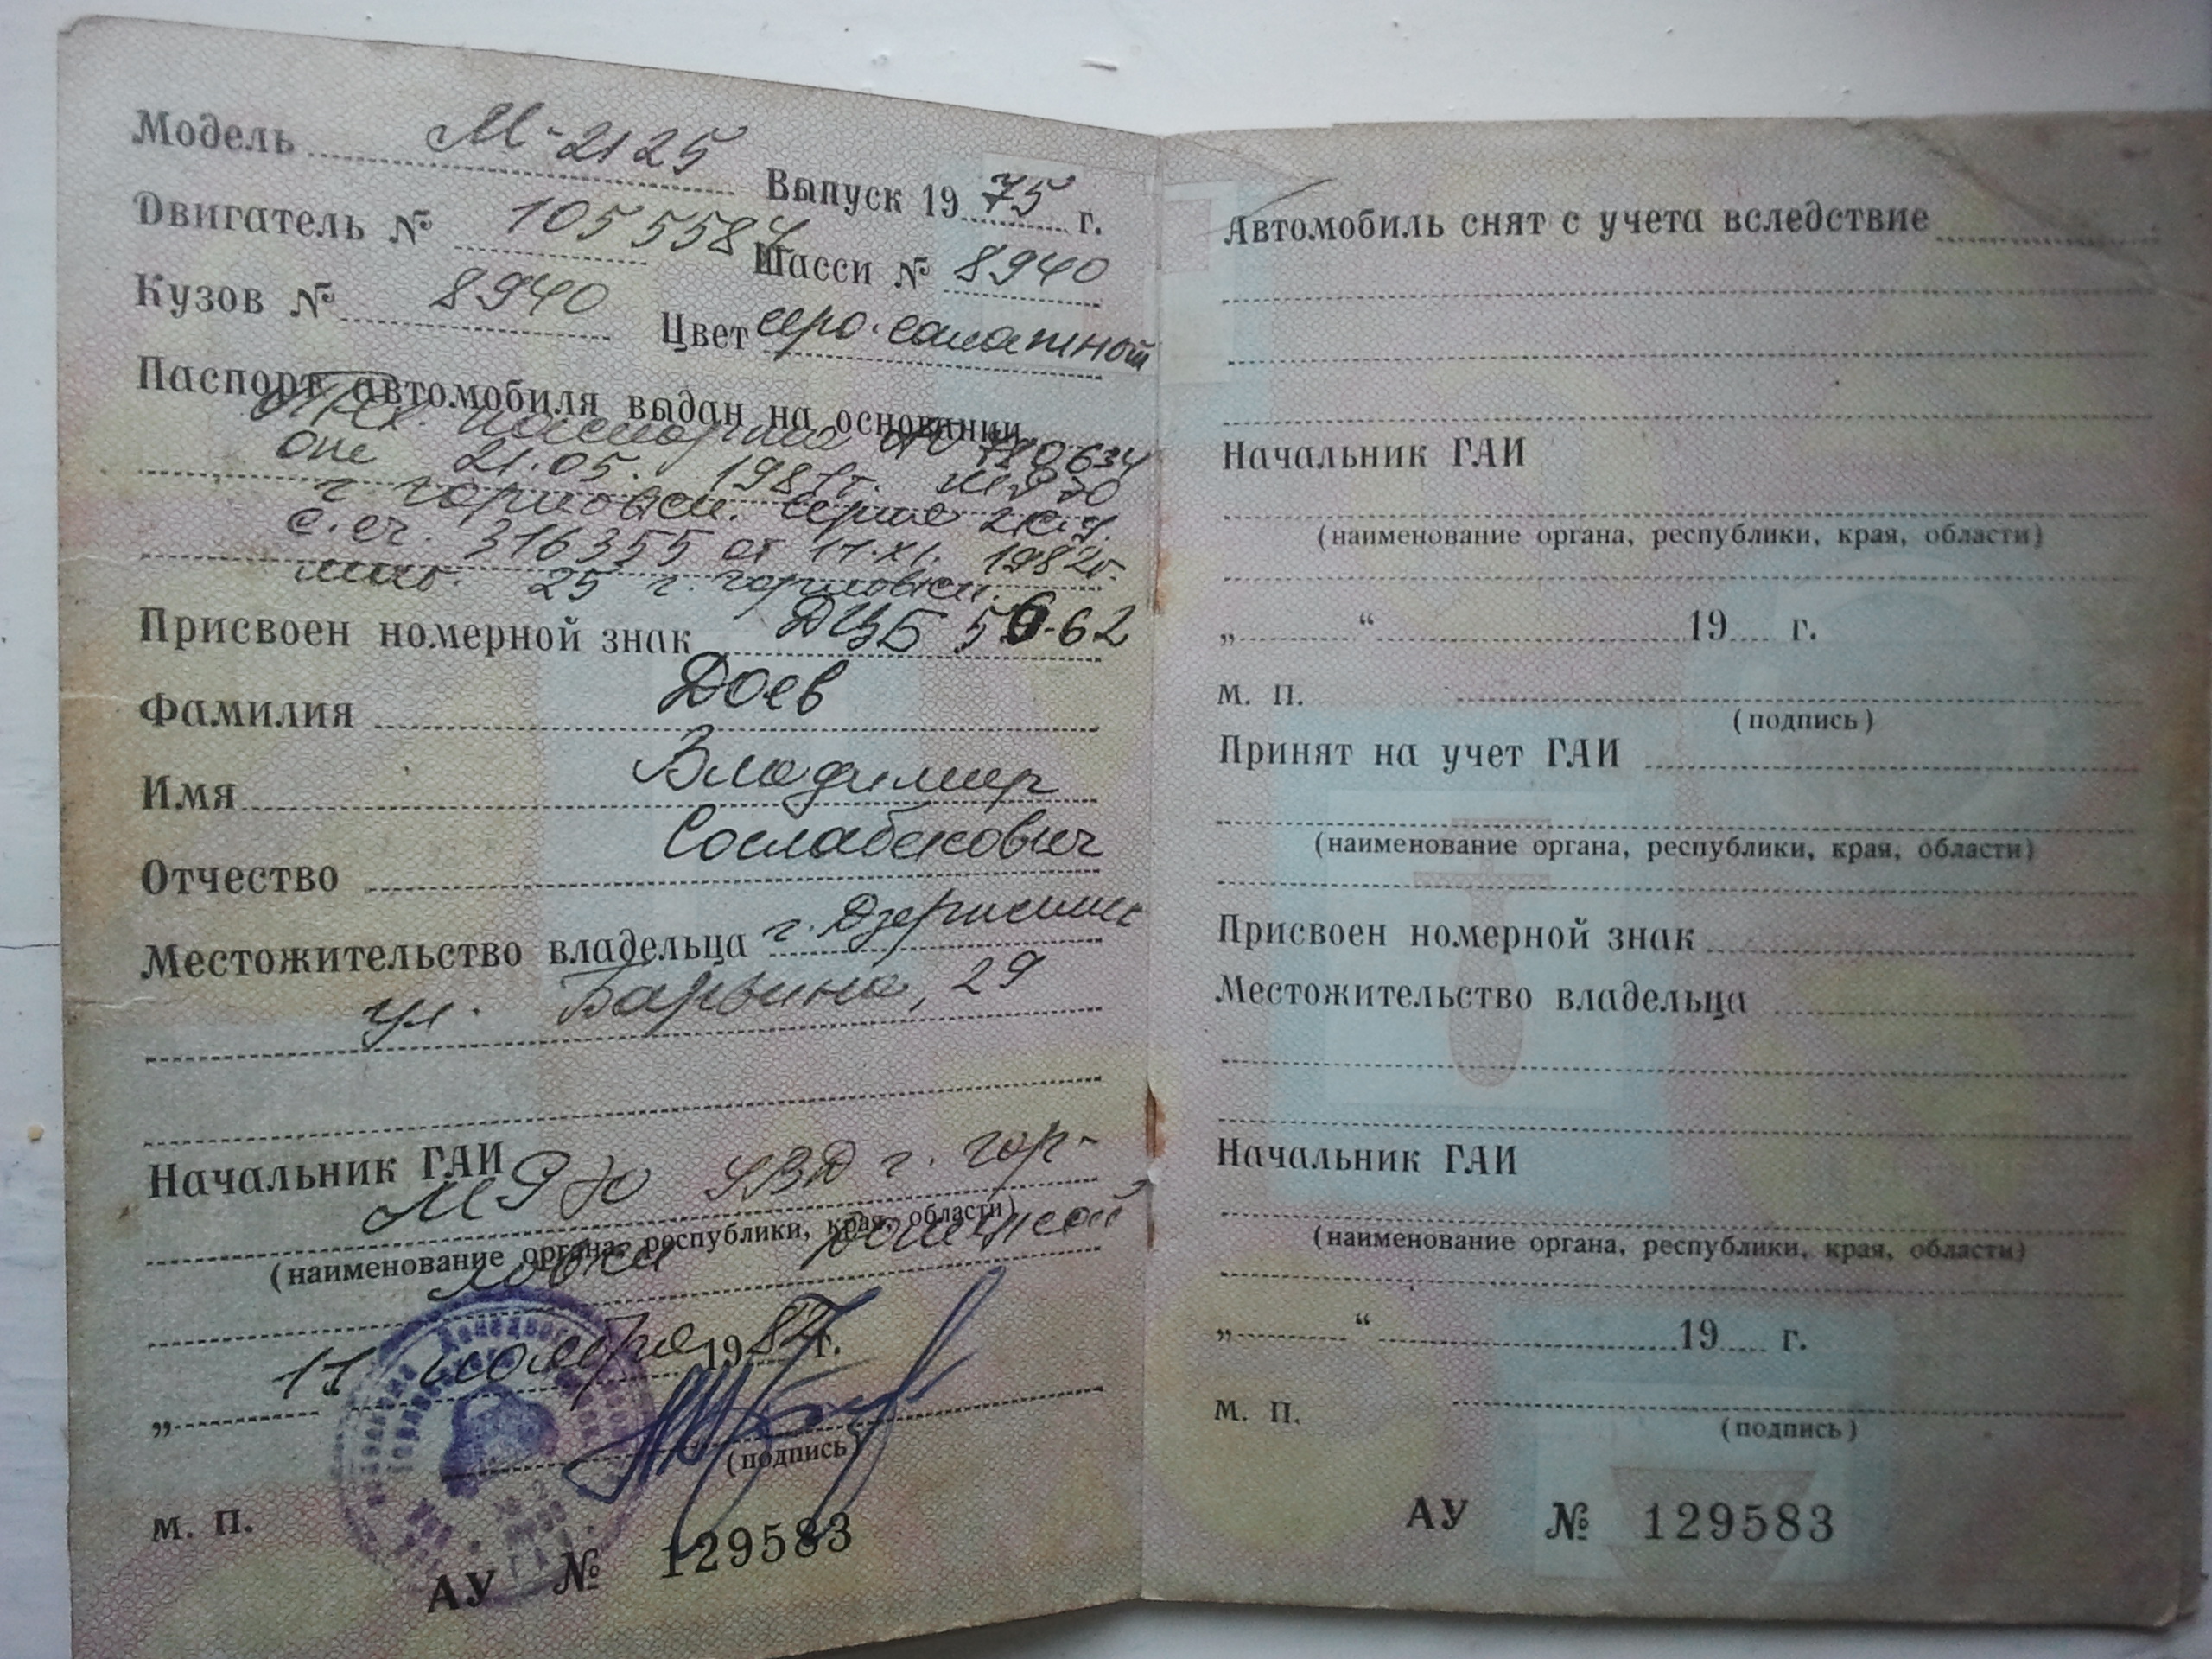 Модель М-2125 Выпуск 1975 г.
Двигатель № 1055584 Шасси № 8940
Кузов № 8940 Цвет серо-салатный
Паспорт автомобиля выдан на основании
Тех. паспорта 780634
21.05. 1981г. МРЭО
г. Горловки. серия
с.сч. 316355 от 11.XI. 1982г.
маг. 25 г. Горловки.
Присвоен номерной знак ДЦБ 56-62
Фамилия Доев
Имя Владимир
Отчество Сослабекович
Местожительство владельца г. Дзержинск
ул. 29
Начальник ГАИ
МРЭО УВД г. Гор-
(наименование органа, республики, края, области)
ловки Донецкой
„11 ноября 1982 г.
(подпись)
М. П.
АУ № 129583
Автомобиль снят с учета вследствие
Начальник ГАИ
(наименование органа, республики, края, области)
„ “ 19 г.
М. П.
(подпись)
Принят на учет ГАИ
(наименование органа, республики, края, области)
Присвоен номерной знак
Местожительство владельца
Начальник ГАИ
(наименование органа, республики, края, области)
„ “ 19 г.
М. П.
(подпись)
АУ № 129583